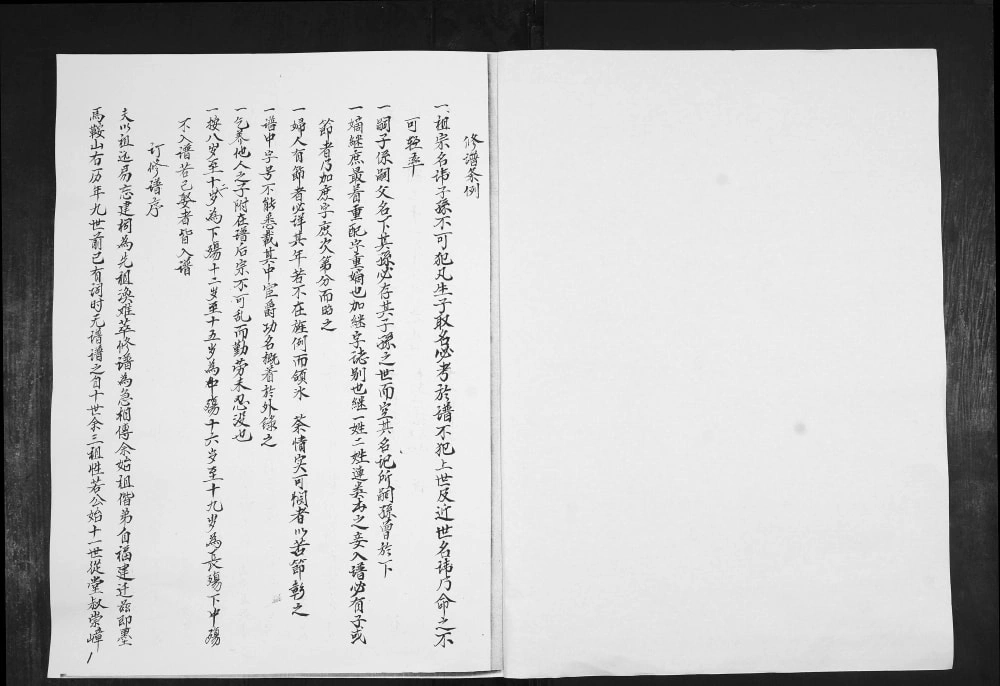 修谱条例
一祖宗名讳子孫不可犯凡生子取名必考於谱不犯上世及近世名讳乃命之不
可轻率
一嗣子保嗣父名下其孫必存其子孫之世而空其名记所嗣孫曾於下
一嫡継庶最着重配字重嫡也加継字誌别也継一姓二姓連类书之妾入谱必有子或
節者乃加庶字庶次第分而昭之
一婦人有節者必详其年若不在旌例而领水 荼情实可悯者以苦節彰之
一谱中字号不能悉載其中宦爵功名概着於外錄之
一乞养他人之子附在谱后宗不可乱而勤劳未忍没也
一按八岁至十一岁為下殤十二岁至十五岁為中殤十六岁至十九岁為長殤下中殤
不入谱若已娶者皆入谱
订修谱序
夫以祖远易忘建祠為先祖渙难萃修谱為急相傅余始祖偕弟自福建迁兹即墨
馬鞍山右历年九世前已有词时无谱谱之自十世余三祖性若公始十一世從堂叔崇嶂
1